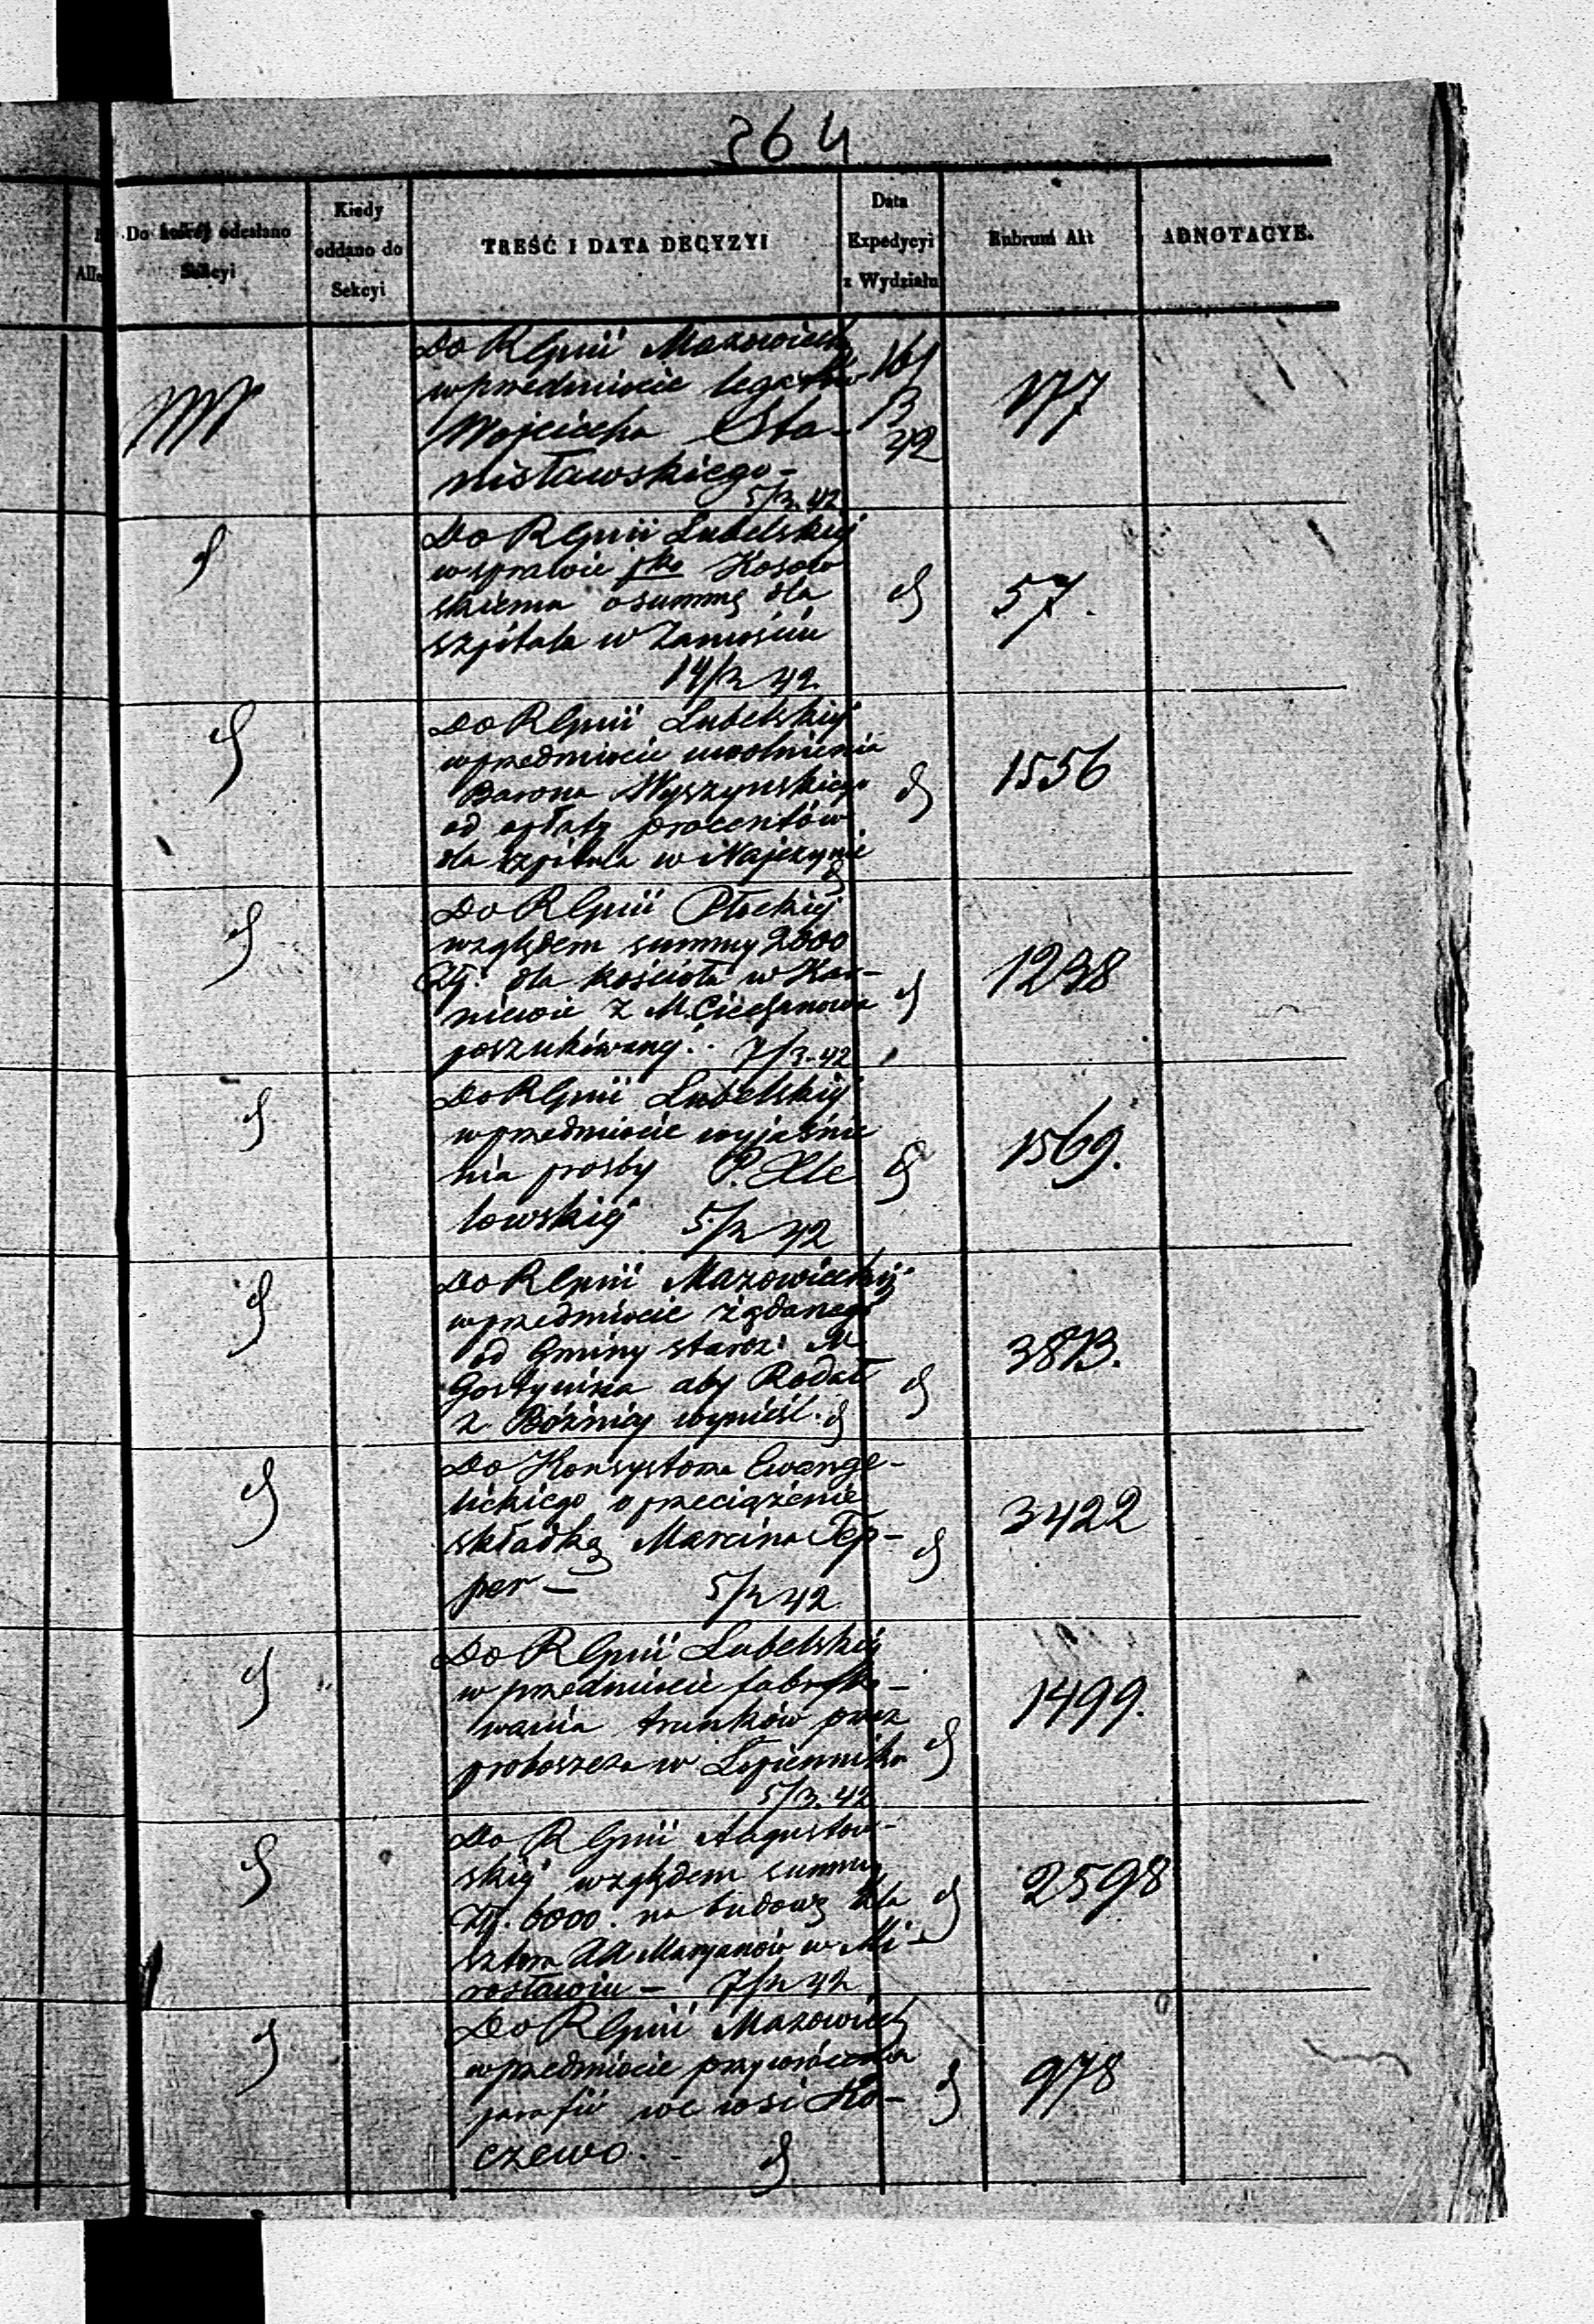 264
Do której odesłano Sekcyi
Kiedy oddano do Sekcyi
TREŚĆ I DATA DECYZYI
Data Expedycyi z Wydziału
Rubrum Akt
ADNOTACYE.
Do RGnii Mazowieck
w przedmiocie legatów
Wojciecha Sta-
nisławskiego-
5/3. 42
177
Do RGnii Lubelskiéj
w sprawie Kosow
skiema o summę dla
szpitala w Zamościu
14/3 42.
57.
Do RGnii Lubelskiéj
w przedmiocie uwolnienia
Barona Wyszyńskiego
od opłaty procentów
dla szpitala w
1556
Do RGnii Płockiéj
względem summy 2000
Złp. dla kościoła w Kar-
niewie z M. Ciechanowa
poszukiwanéj. 7/3. 42
1238
Do RGnii Lubelskiéj
w przedmiocie wyjaśnie
nia prośby P.
towskiéj 5/3 42
1569.
Do RGnii Mazowieckiéj
w przedmiocie żądanego
od Gminy staroz: M.
Gostynina aby Rodał
z Bóżnicy wynieść.
3813.
Do Konsystorza Ewange-
lickiego o przeciążenie
składką Marcina Tep-
per - 5/3 42.
3422
Do RGnii Lubelskiéj
w przedmiocie fabryko-
wania trunków przez
proboszcza w Łopienniku
5/3. 42
1499.
Do RGnii Augustow-
skiéj względem summy
Złp. 6000. na budowę kla
sztoru XX Maryanów w Mi-
rosławiu - 7/3 42
2598
Do RGnii Mazowieck
w przedmiocie przywrócenia
parafii we wsi Ko-
czewo.
978